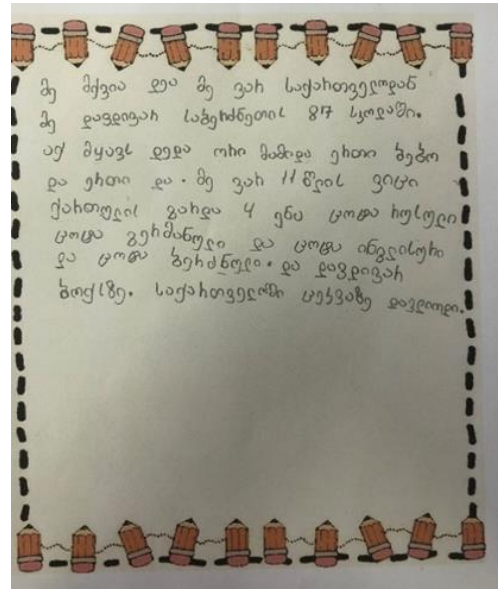 მე მქვია დეა მე ვარ საქართველოდან
მე დავდივარ საბერძნეთის 87 სკოლაში.
აქ მყავს დედა ორი მამიდა ერთი ბებო
და ერთი და. მე ვარ 11 წლის ვიცი
ქართულის გარდა 4 ენა ცოტა რუსული
ცოტა გერმანული და ცოტა ინგლისური
და ცოტა ბერძნული. და დავდივარ
ბოქსზე. საქართველოში ცეკვაზე დავდიოდი.